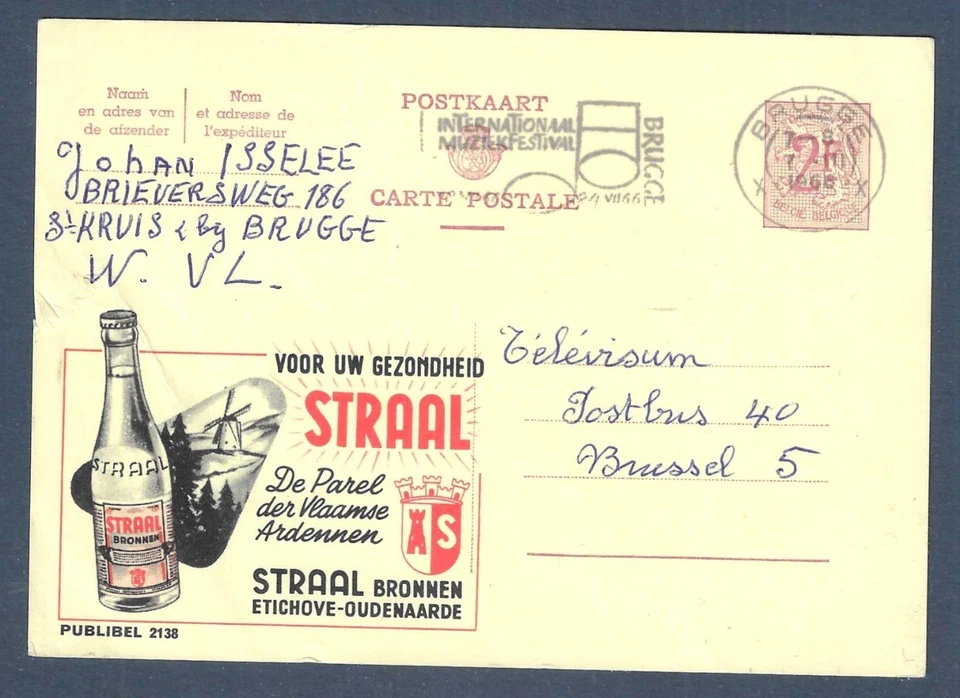 Naam
en adres van
de afzender
Nom
et adresse de
l'expéditeur
POSTKAART
INTERNATIONAAL
MUZIEKFESTIVAL
BRUGGE
CARTE POSTALE
BRUGGE
1966
2F
BELGIE BELGIQUE
Johan ISSELEE
BRIEVERSWEG 186
St KRUIS bij BRUGGE
W. VL.
VOOR UW GEZONDHEID
STRAAL
De Parel
der Vlaamse
Ardennen
STRAAL
STRAAL
BRONNEN
S
STRAAL BRONNEN
ETICHOVE-OUDENAARDE
PUBLIBEL 2138
Télévisum
Postbus 40
Brussel 5